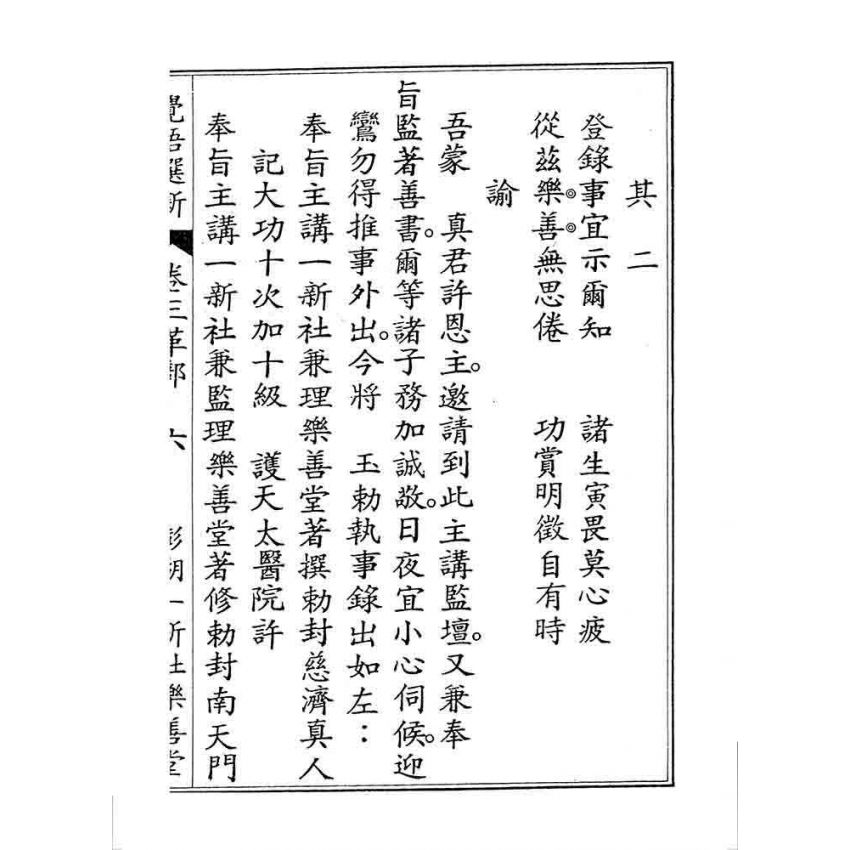 其二
登錄事宜示爾知　諸生寅畏莫心疲
從茲樂善無思倦　功賞明徵自有時
諭
吾蒙　真君許恩主。邀請到此主講監壇。又兼奉
旨監著善書。爾等諸子務加誠敬。日夜宜小心伺候。迎
鸞勿得推事外出。今將　玉勅執事錄出如左：
奉旨主講一新社兼理樂善堂著撰勅封慈濟真人
記大功十次加十級　護天太醫院許
奉旨主講一新社兼監理樂善堂著修勅封南天門
覺悟選新　卷三革部　六　澎湖一新社樂善堂